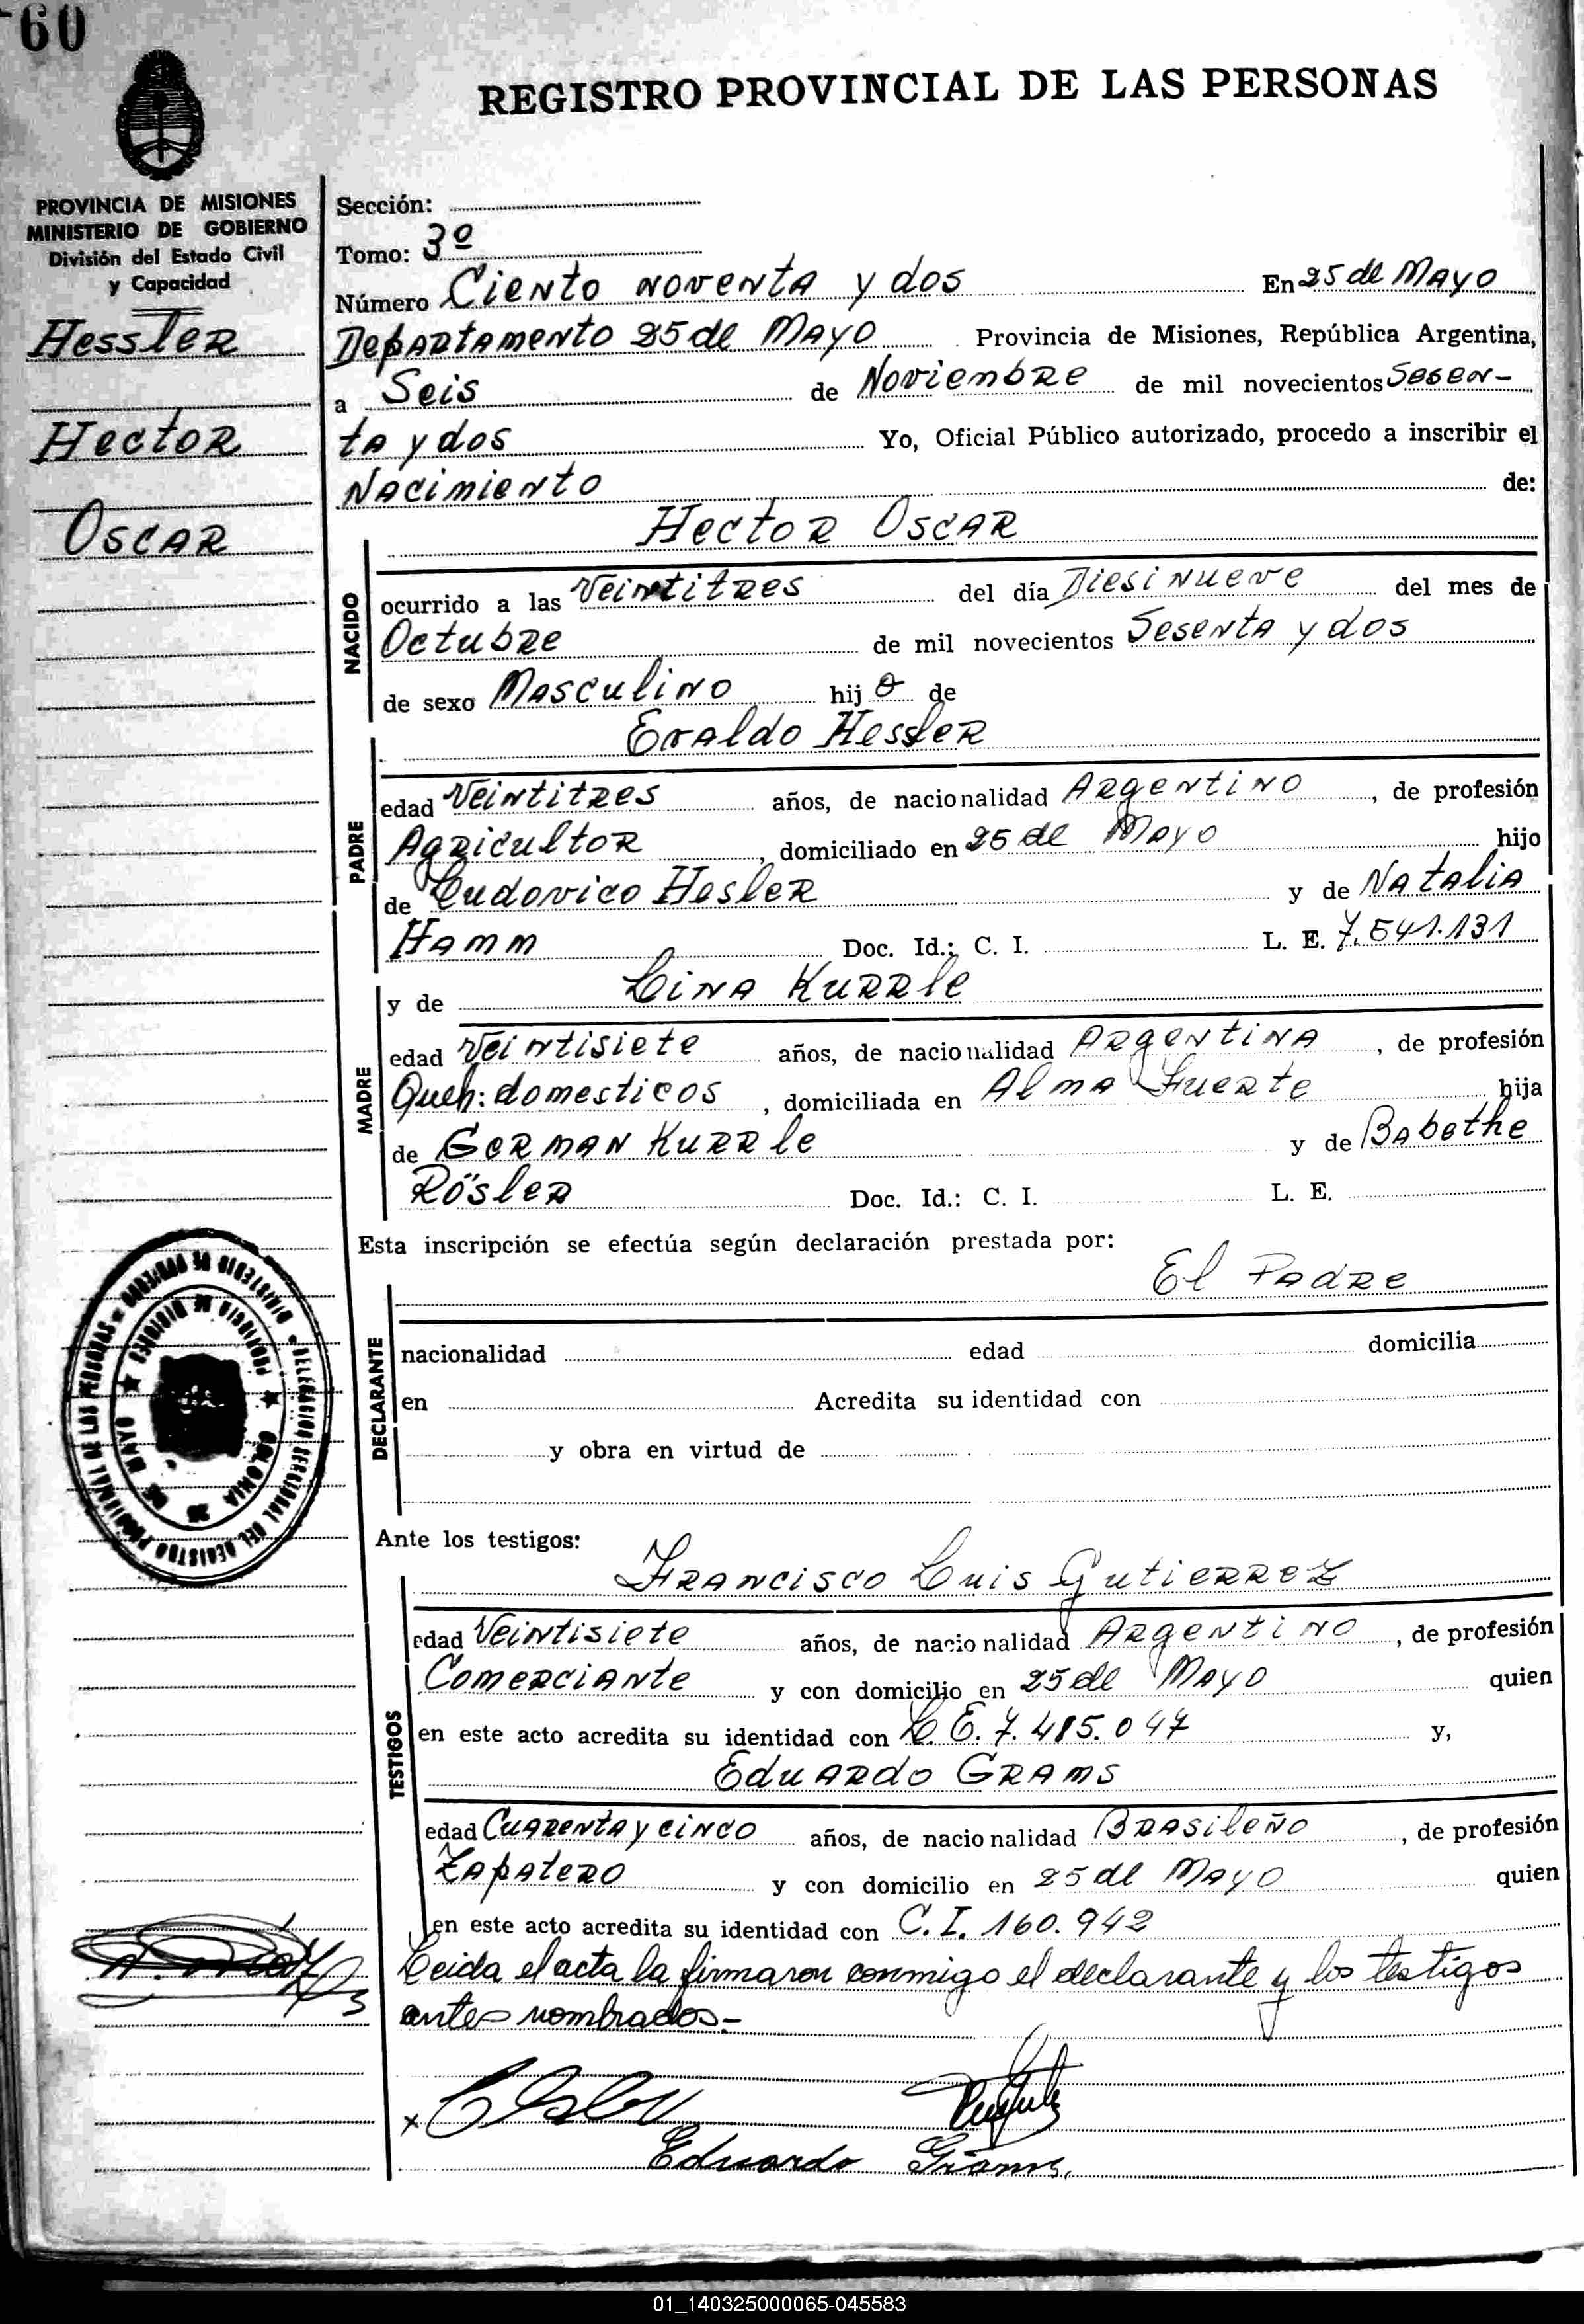 60
REGISTRO PROVINCIAL DE LAS PERSONAS
PROVINCIA DE MISIONES
MINISTERIO DE GOBIERNO
División del Estado Civil
y Capacidad
Hessler
Hector
Oscar
Sección:
Tomo: 3º
Número Ciento noventa y dos En 25 de Mayo
Departamento 25 de Mayo Provincia de Misiones, República Argentina,
a Seis de Noviembre de mil novecientos Sesen-
ta y dos Yo, Oficial Público autorizado, procedo a inscribir el
Nacimiento de:
Hector Oscar
NACIDO
ocurrido a las Veintitres del día Diesinueve del mes de
Octubre de mil novecientos Sesenta y dos
de sexo Masculino hijo de
Evaldo Hessler
PADRE
edad Veintitres años, de nacionalidad Argentino, de profesión
Agricultor, domiciliado en 25 de Mayo hijo
de Ludovico Hesler y de Natalia
Hamm Doc. Id.: C. I. L. E. 7.541.131
y de Lina Kurrle
MADRE
edad Veintisiete años, de nacionalidad Argentina, de profesión
Queh: domesticos, domiciliada en Alma Fuerte hija
de German Kurrle y de Babethe
Rösler Doc. Id.: C. I. L. E.
Esta inscripción se efectúa según declaración prestada por:
El Padre
DECLARANTE
nacionalidad edad domicilia
en Acredita su identidad con
y obra en virtud de
Ante los testigos:
Francisco Luis Gutierrez
TESTIGOS
edad Veintisiete años, de nacionalidad Argentino, de profesión
Comerciante y con domicilio en 25 de Mayo quien
en este acto acredita su identidad con L. E. 7.485.047 y,
Eduardo Grams
edad Cuarenta y cinco años, de nacionalidad Brasileño, de profesión
Zapatero y con domicilio en 25 de Mayo quien
en este acto acredita su identidad con C. I. 160.942
Leida el acta la firmaron conmigo el declarante y los testigos
antes nombrados.-
Eduardo Grams.
01_140325000065-045583